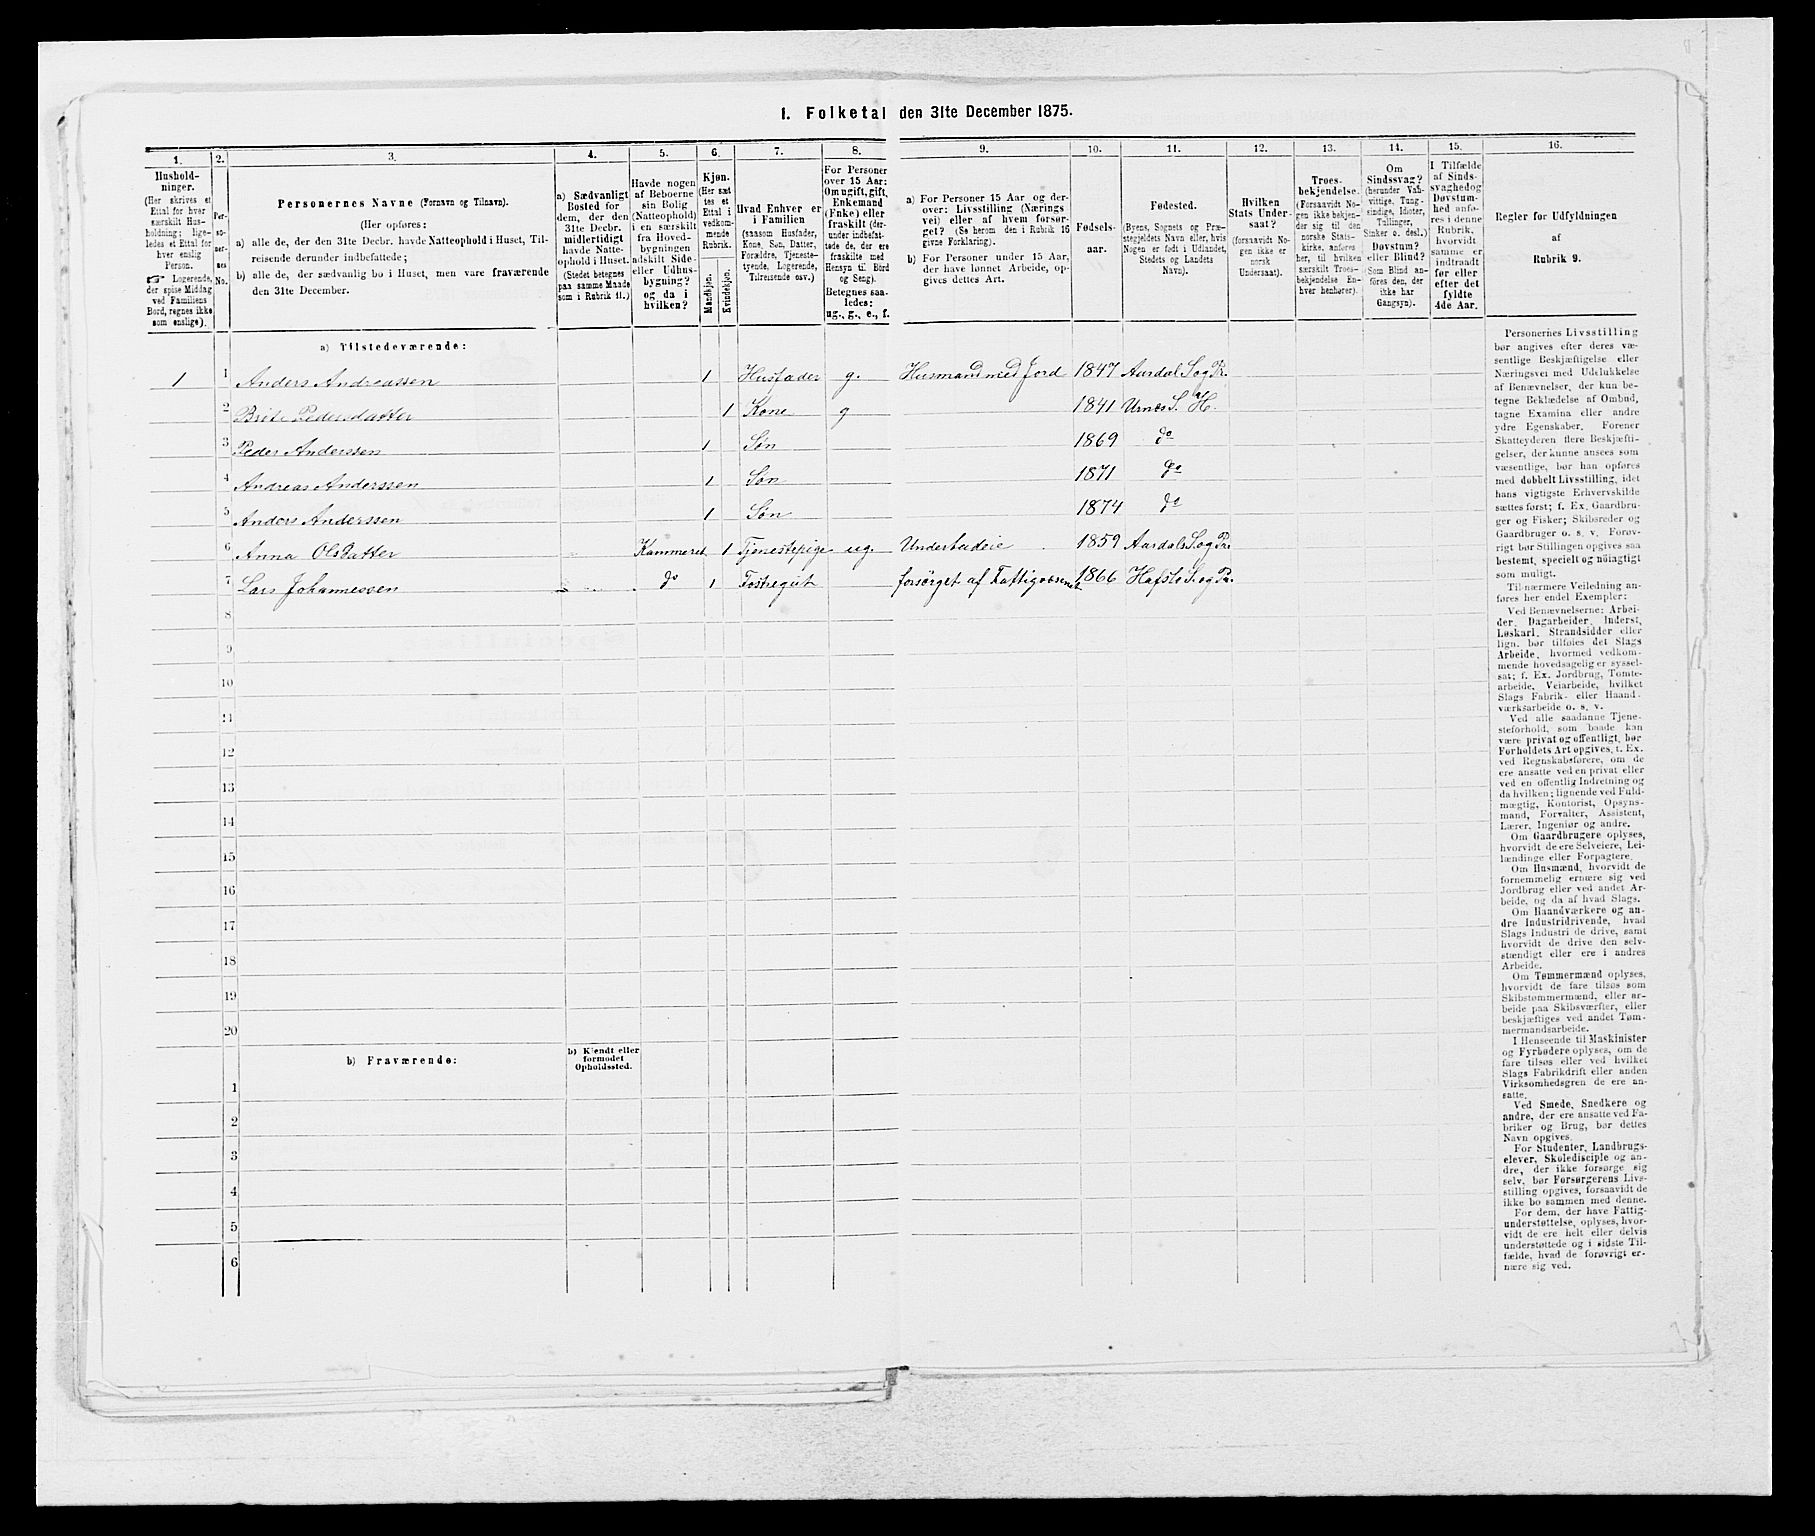 I. Folketal den 31te December 1875.
1. 2. 3. 4. 5. 6. 7. 8. 9. 10. 11. 12. 13. 14. 15. 16.
Hushold-
ninger.
(Her skrives et
Ettal for hver
særskilt Hus-
holdning; lige-
ledes et Ettal for
hver enslig
Person.
☞ Logerende,
der spise Middag
ved Familiens
Bord, regnes ikke
som enslige).
Per-
so-
ner-
nes
No.
Personernes Navne (Fornavn og Tilnavn).
(Her opføres:
a) alle de, der den 31te Decbr. havde Natteophold i Huset, Til-
reisende derunder indbefattede;
b) alle de, der sædvanlig bo i Huset, men vare fraværende
den 31te December.
a) Sædvanligt
Bosted for
dem, der den
31te Decbr.
midlertidigt
havde Natte-
ophold i Huset.
(Stedet betegnes
paa samme Maade
som i Rubrik 11.)
Havde nogen
af Beboerne
sin Bolig
(Natteophold)
i en særskilt
fra Hoved-
bygningen
adskilt Side-
eller Udhus-
bygning?
og da i
hvilken?
Kjøn.
(Her sæt
tes et
Ettal i
vedkom-
mende
Rubrik.
Mandkjøn.
Kvindekjøn.
Hvad Enhver er
i Familien
(saasom Husfader,
Kone, Søn, Datter,
Forældre, Tjeneste-
tyende, Logerende,
Tilreisende osv.)
For Personer
over 15 Aar:
Om ugift, gift,
Enkemand
(Enke) eller
fraskilt (der-
under indbefat-
tede de, der ere
fraskilte med
Hensyn til Bord
og Seng).
Betegnes saa-
ledes:
ug., g., e., f.
a) For Personer 15 Aar og der-
over: Livsstilling (Nærings
vei) eller af hvem forsør-
get? (Se herom den i Rubrik 16
givne Forklaring).
b) For Personer under 15 Aar,
der have lønnet Arbeide, op-
gives dettes Art.
Fødsels-
aar.
Fødested.
(Byens, Sognets og Præ-
stegjeldets Navn eller, hvis
Nogen er født i Udlandet,
Stedets og Landets
Navn).
Hvilken
Stats Under-
saat?
(forsaavidt No-
gen ikke er
norsk
Undersaat).
Troes-
bekjendelse.
(Forsaavidt No-
gen ikke bekjen-
der sig til den
norske Stats-
kirke, anføres
her, til hvilken
særskilt Troes-
bekjendelse En-
hver henhører).
Om
Sindssvag?
(herunder Van-
vittige, Tung-
sindige, Idioter,
Tullinger,
Sinker o. desl.)
Døvstum?
eller Blind?
(Som Blind an-
føres den, der
ikke har
Gangsyn).
I Tilfælde
af Sinds-
svaghedog
Døvstum-
hed anfø-
res i denne
Rubrik,
hvorvidt
samme er
indtraadt
før eller
efter det
fyldte
4de Aar.
Regler for Udfyldningen
af
Rubrik 9.
a) Tilstedeværende:
1 1 Anders Andreassen 1 Husfader g. Husmand med Jord 1847 Aardal S. og Pr.
2 Brite Pedersdatter 1 Kone g 1841 Urnes S. H.
3 Peder Anderssen 1 Søn 1869 do
4 Andreas Anderssen 1 Søn 1871 do
5 Anders Anderssen 1 Søn 1874 do
6 Anna Olsdatter Kammeret 1 Tjenestepige ug. Underbudeie 1859 Aardals S. og Pr.
7 Lars Johannessen do 1 Fostregut forsørget af Fattigvæsenet 1866 Hafslo S. og Pr.
8
9
10
11
12
13
14
15
16
17
18
19
20
b) Fraværende:
b) Kjendt eller
formodet
Opholdssted.
1
2
3
4
5
6
Personernes Livsstilling
bør angives efter deres væ-
sentlige Beskjæftigelse eller
Næringsvei med Udelukkelse
af Benævnelser, der kun be-
tegne Beklædelse af Ombud,
tagne Examina eller andre
ydre Egenskaber. Forener
Skatteyderen flere Beskjæfti-
gelser, der kunne ansees som
væsentlige, bør han opføres
med dobbelt Livsstilling, idet
hans vigtigste Erhvervskilde
sættes først; f. Ex. Gaardbru-
ger og Fisker; Skibsreder og
Gaardbruger o. s. v. Forøv-
rigt bør Stillingen opgives saa
bestemt, specielt og nøiagtigt
som muligt.
Til nærmere Veiledning an-
føres her endel Exempler:
Ved Benævnelserne: Arbei-
der, Dagarbeider, Inderst,
Løskarl, Strandsidder eller
lign. bør tilføies det Slags
Arbeide, hvormed vedkom-
mende hovedsagelig er syssel-
sat; f. Ex. Jordbrug, Tomte-
arbeide, Veiarbeide, hvilket
Slags Fabrik- eller Haand-
værksarbeide o. s. v.
Ved alle saadanne Tjene-
steforhold, som baade kan
være privat og offentligt, bør
Forholdets Art opgives, t. Ex.
ved Regnskabsførere, om de
ere ansatte ved en privat eller
ved en offentlig Indretning og
da hvilken; lignende ved Fuld-
mægtig, Kontorist, Opsyns-
mand, Forvalter, Assistent,
Lærer, Ingeniør og andre.
Om Gaardbrugere oplyses,
hvorvidt de ere Selveiere, Lei-
lændinge eller Forpagtere.
Om Husmænd, hvorvidt de
fornemmelig ernære sig ved
Jordbrug eller ved andet Ar-
beide, og da af hvad Slags.
Om Haandværkere og an-
dre Industridrivende, hvad
Slags Industri de drive, samt
hvorvidt de drive den selv-
stændigt eller ere i andres
Arbeide.
Om Tømmermænd oplyses,
hvorvidt de fare tilsøs som
Skibstømmermænd, eller ar-
beide paa Skibsværfter, eller
beskjæftiges ved andet Tøm-
mermandsarbeide.
I Henseende til Maskinister
og Fyrbødere oplyses, om de
fare tilsøs eller ved hvilket
Slags Fabrikdrift eller anden
Virksomhedsgren de ere an-
satte.
Ved Smede, Snedkere og
andre, der ere ansatte ved Fa-
briker og Brug, bør dettes
Navn opgives.
For Studenter, Landbrugs-
elever, Skoledisciple og an-
dre, der ikke forsørge sig
selv, bør Forsørgerens Livs-
stilling opgives, forsaavidt de
ikke bo sammen med denne.
For dem, der have Fattig-
understøttelse, oplyses, hvor-
vidt de ere helt eller delvis
understøttede og i sidste Til-
fælde, hvad de forøvrigt er-
nære sig ved.